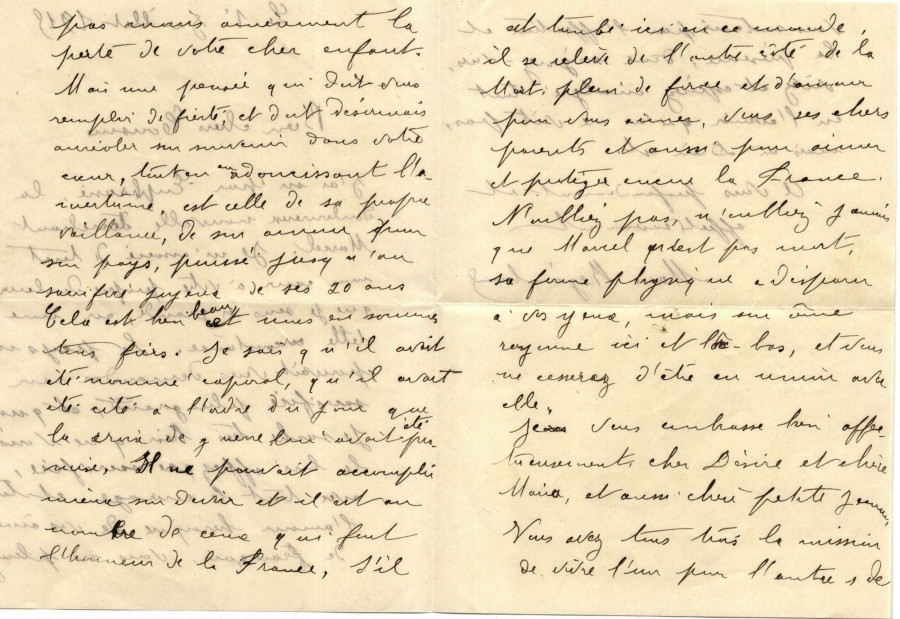 pas moins amèrement la
perte de votre cher enfant.
Mais une pensée qui doit vous
remplir de fierté et doit désormais
auréoler son souvenir dans votre
cœur, tout en en adoucissant l'a
mertume est celle de sa propre
vaillance, de son amour pour
son pays, poussé jusqu'au
sacrifice joyeux de ses 20 ans
Cela est bien beau et nous en sommes
tous fiers. Je sais qu'il avait
été nommé caporal, qu'il avait
été cité à l'ordre du jour que
la croix de guerre lui avait été pro-
mise. Il ne pouvait accomplir
mieux son devoir et il est au
nombre de ceux qui font
l'honneur de la France, s'il
est tombé ici en ce monde,
il se relève de l'autre côté de la
Mort plein de force et d'amour
pour vous aimer, vous ses chers
parents et aussi pour aimer
et protéger encore la France.
N'oubliez pas, n'oubliez jamais
que Marcel n'est pas mort,
sa forme physique a disparu
à vos yeux, mais son âme
rayonne ici et là-bas, et vous
ne cesserez d'être en union avec
elle.
Je vous embrasse bien affec-
tueusement, cher Désiré et chère
Maria, et aussi chère petite
Vous avez tous trois la mission
de vivre l'un pour l'autre, de